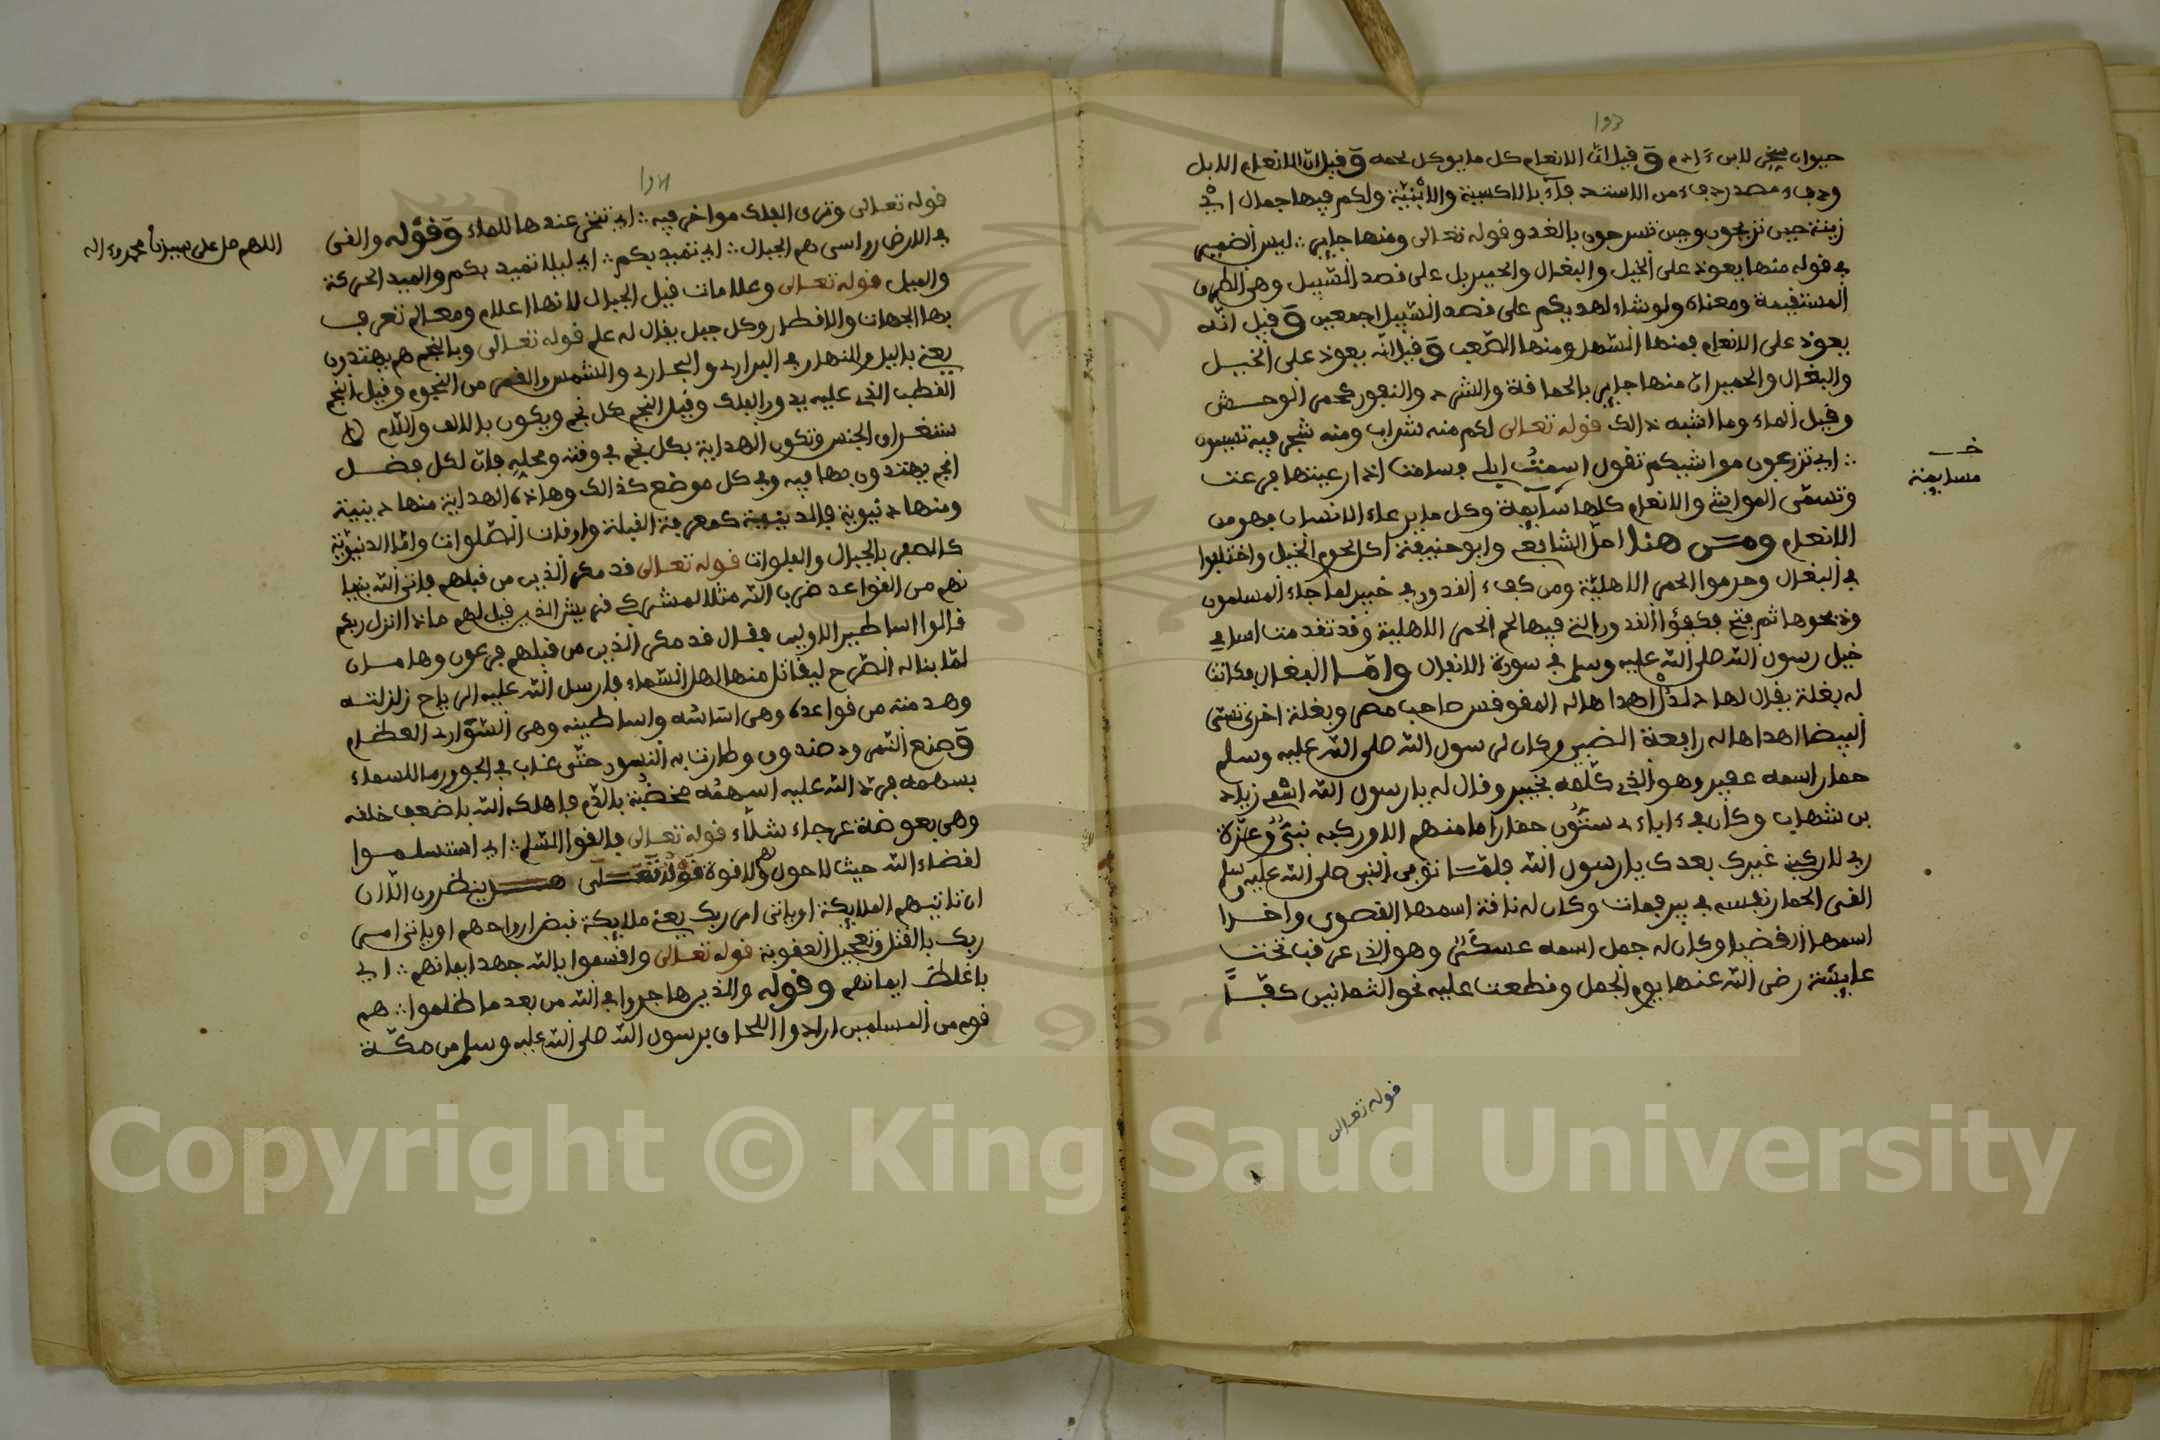 حيوان سخر لابن ءادم وقيل ان الانعام كل ما يوكل لحمه وقيل ان الانعام الابل
ودفء مصدر دفء من الاستدفاء بالاكسية والابنية ولكم فيها جمال اي
زينة حين تريحون وحين تسرحون بالغدو قوله تعالى ومنها جاير ليس الضمير
في قوله منها يعود على الخيل والبغال والحمير بل على قصد السبيل وهي الطريق
المستقيمة ومعناه ولو شاء لهديكم على قصد السبيل اجمعين وقيل انه
يعود على الانعام فمنها السهل ومنها الصعب وقيل انه يعود على الخيل
والبغال والحمير ان منها جاير بالحماقة والشرد والنفور كحمر الوحش
وقيل الماء وما اشبه ذالك قوله تعالى لكم منه شراب ومنه شجر فيه تسيمون
اي تزرعون مواشيكم تقول اسمت ابلي فسامت اذا رعيتها فرعت
وتسمى المواشي والانعام كلها سايمة وكل ما يرعاه الانسان فهو من
الانعام ومن هنا احل الشافعي وابو حنيفة اكل لحوم الخيل واختلفوا
في البغال وحرموا الحمر الاهلية ومن كفء القدور في خيبر لما جاء المسلمون
وذبحوها ثم فتح فكفؤا القدور التي فيها لحم الحمر الاهلية وقد تقدمت اسامي
خيل رسول الله صلى الله عليه وسلم في سورة الانفال واما البغال فكانت
له بغلة يقال لها دلدل اهداها له المقوقس صاحب مصر وبغلة اخرى تسمى
البيضا اهداها له رابعة الضبي وكان لرسول الله صلى الله عليه وسلم
حمار اسمه عفير وهو الذي كلمه بخيبر وقال له يا رسول الله اسمي زياد
بن شهاب وكان في ءاباءي ستون حمارا ما منهم الا وركبه نبي وعزة
ربي لا ركبني غيرك بعدك يا رسول الله فلما توفي النبي صلى الله عليه وسلم
القى الحمار نفسه في بير فمات وكان له ناقة اسمها القصوى واخرا
اسمها القضبا وكان له جمل اسمه عسكر وهو الذي عرقب تحت
عايشة رضي الله عنها يوم الجمل وقطعت عليه نحو الثمانين كفا
قوله تعالى
خـ
مسايمة
قوله تعالى وترى الفلك مواخر فيه اي تمخر عندها للماء وقوله والقى
في الارض رواسي هم الجبال اي تميد بكم اي ليلا تميد بكم والميد الحركة
والميل قوله تعالى وعلامات قيل الجبال لانها اعلام ومعالم تعرف
بها الجهات والاقطار وكل جبل يقال له علم قوله تعالى وبالنجم هم يهتدون
يعني باليل والنهار في البراري والبحاري والشمس والقمر من النجوم وقيل النجم
القطب الذي عليه يدور الفلك وقيل النجم كل نجم ويكون بالالف واللام
ستغراق الجنس وتكون الهداية بكل نجم في وقته ومحله فان لكل فصل
انجم يهتدون بها فيه وفي كل موضع كذالك وهاذه الهداية منها دينية
ومنها دنيوية فالدينية كمعرفة القبلة واوقات الصلوات واما الدنيوية
كالسفر بالجبال والفلوات قوله تعالى قد مكر الذين من قبلهم فاتى الله بنيا
نهم من القواعد ضرب الله مثلا لمشركي قريش الذين قيل لهم ماذا انزل ربكم
قالوا اساطير الاولين فقال قد مكر الذين من قبلهم فرعون وهامان
لما بنا له الصرح ليقاتل منها اهل السماء فارسل الله عليه الرياح زلزلته
وهدمته من قواعده وهي اساسه واساطينه وهي السواري العظام
وصنع النمرود صندوق وطارت به النسور حتى غاب في الجو ورما للسماء
بسهمه فرد الله عليه اسهمه مخضبة بالدم فاهلكه الله باضعف خلقه
وهي بعوضة عرجاء شلاء قوله تعالى فالقوا السلم اي استسلموا
لقضاء الله حيث لا حول لهم ولا قوة قوله تعالى هل ينظرون الا ان
ان تاتيهم الملايكة او ياتي امر ربك يعني ملايكة تقبض ارواحهم او ياتي امر
ربك بالقتل وتعجيل العقوبة قوله تعالى واقسموا بالله جهد ايمانهم اي
باغلظ ايمانهم وقوله والذين هاجروا في الله من بعد ما ظلموا هم
قوم من المسلمين ارادوا اللحاق برسول الله صلى الله عليه وسلم من مكة
اللهم صل على سيدنا محمد وءاله
Copyright © King Saud University
1957